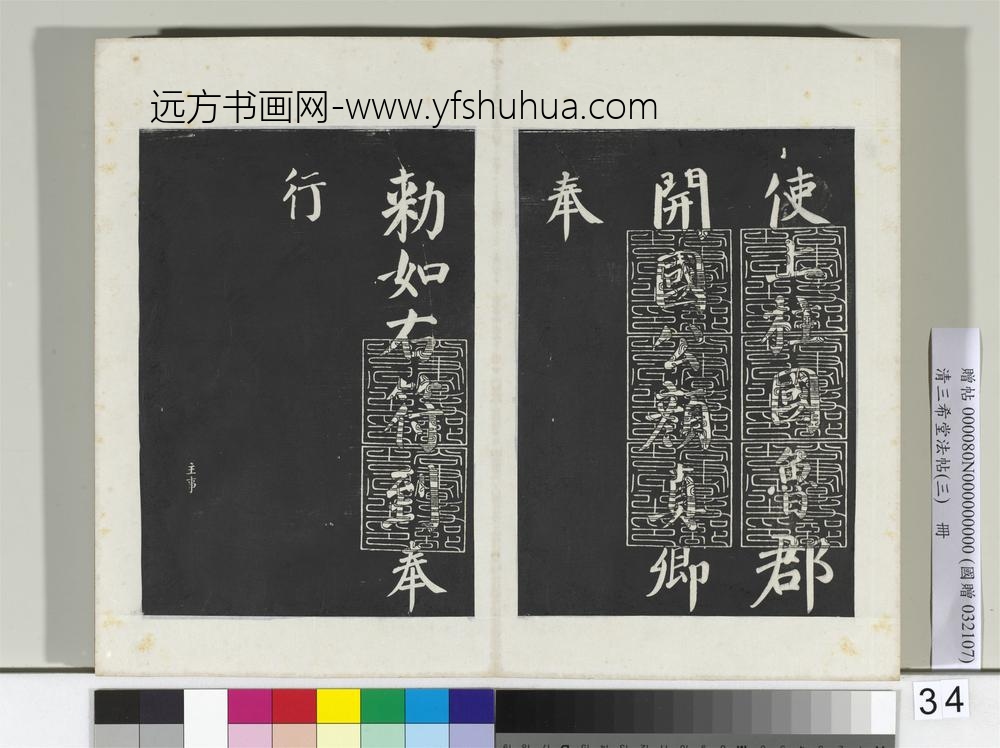 远方书画网-www.yfshuhua.com
使上柱國魯郡
開國公顏真卿
奉
勅如右符到奉
行
主事
贈帖 000080N000000000 (國贈 032107)
清三希堂法帖(三) 冊
34